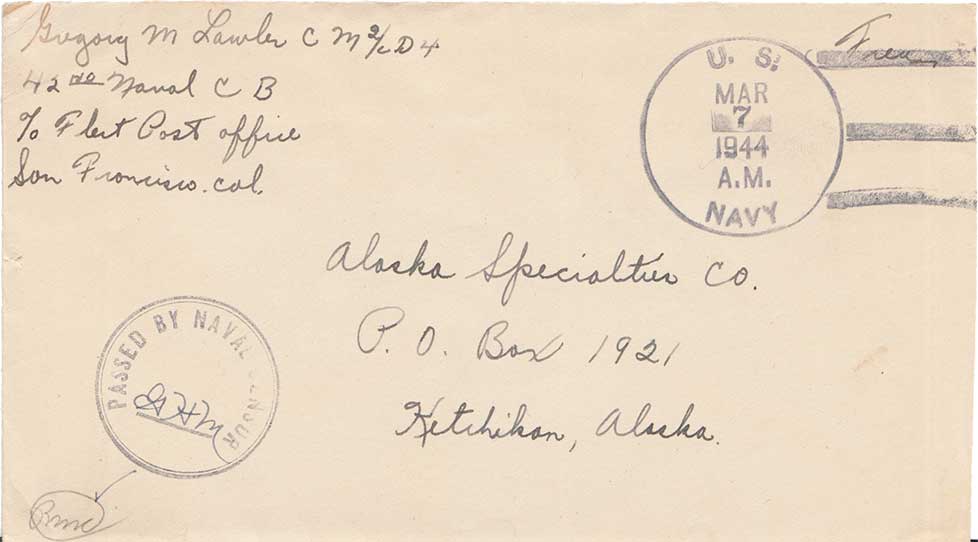 Gregory M Lawler C M 2/c D 4
42 ND Naval C B
℅ Fleet Post office
San Francisco. Cal.
U. S.
MAR
7
1944
A.M.
NAVY
Free
Alaska Specialties Co.
P. O. Box 1921
Ketchikan, Alaska.
PASSED BY NAVAL CENSOR